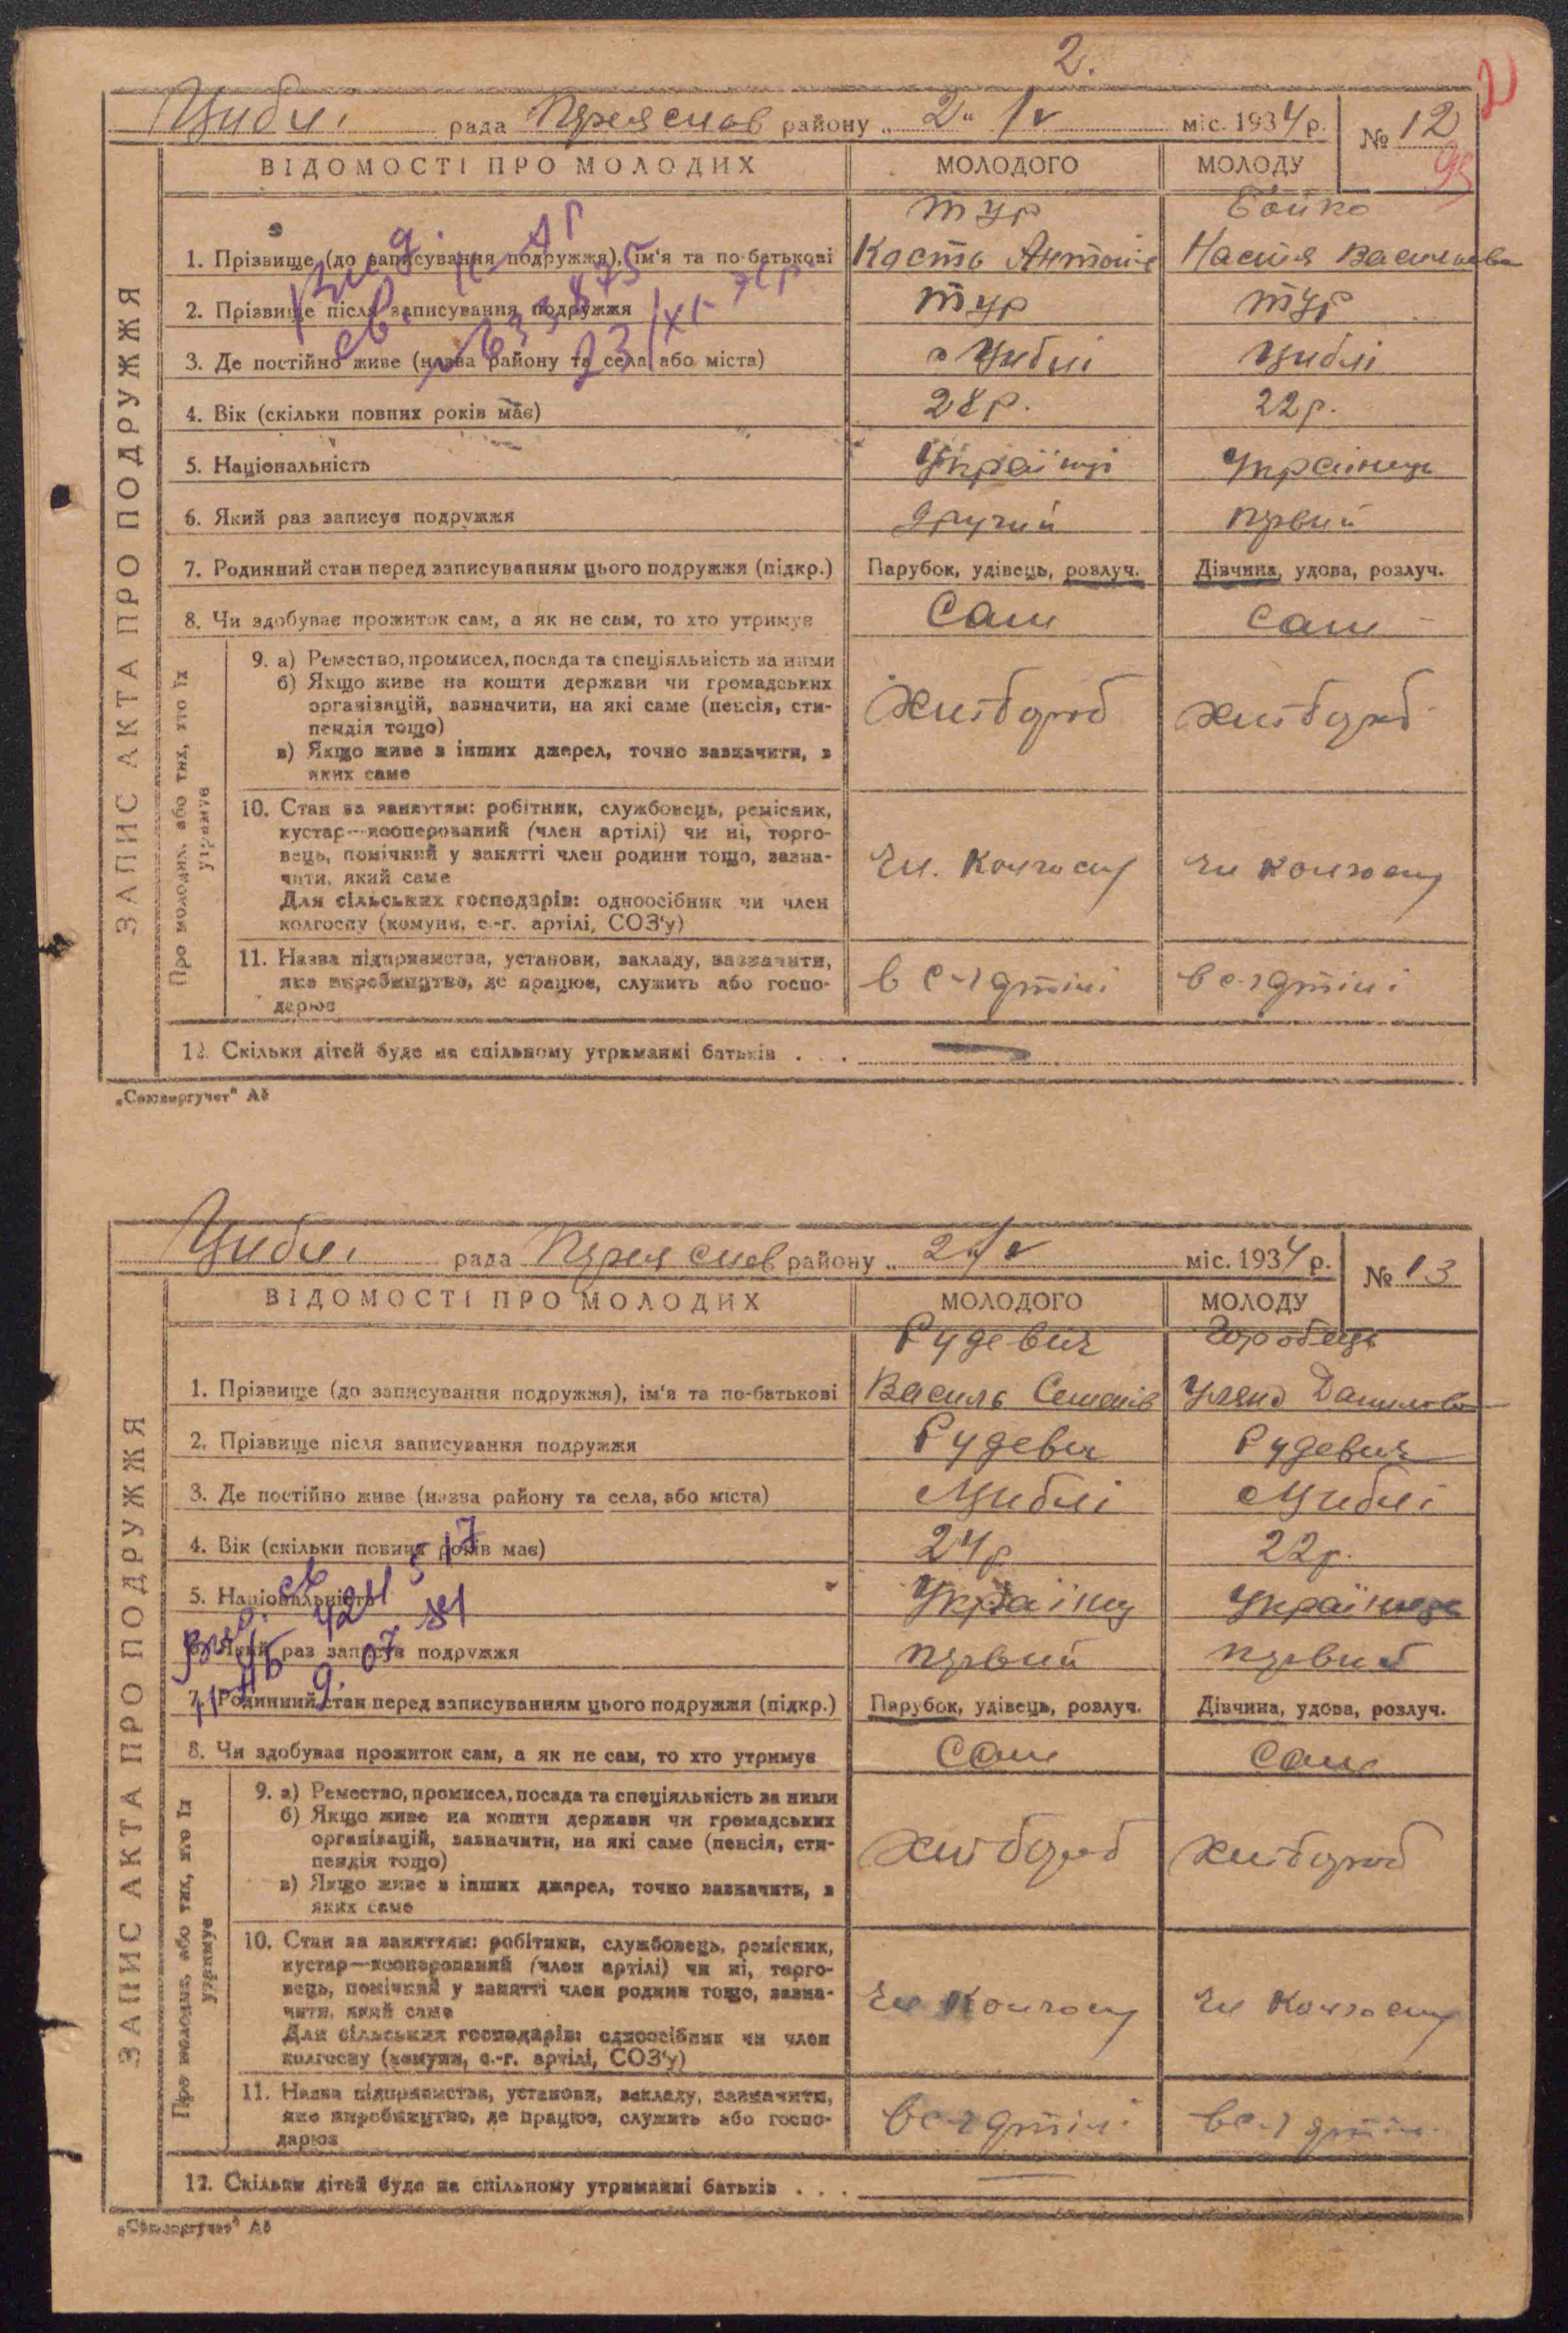 2.
2
Циблі рада Переяслов району „ 2 " IV міс. 1934 р. № 12
95
ВІДОМОСТІ ПРО МОЛОДИХ МОЛОДОГО МОЛОДУ
Тур Бойко
1. Прізвище (до записування подружжя), ім'я та по-батькові Кость Антонів Настя Васильева
2. Прізвище після записування подружжя Тур Тур
3. Де постійно живе (назва району та села або міста) Циблі Циблі
4. Вік (скільки повних років має) 28 р. 22 р.
5. Національність Україн Українець
6. Який раз записує подружжя другий первий
7. Родинний стан перед записуванням цього подружжя (підкр.) Парубок, удівець, розлуч. Дівчина, удова, розлуч.
8. Чи здобуває прожиток сам, а як не сам, то хто утримує Сам сам
9. а) Ремество, промисел, посада та спеціяльність за ними
б) Якщо живе на кошти держави чи громадських
організацій, зазначити, на які саме (пенсія, сти-
пендія тощо)
Хлібороб хлібороб
в) Якщо живе з інших джерел, точно зазначити, з
яких саме
10. Стан за заняттям: робітник, службовець, ремісник,
кустар—кооперований (член артілі) чи ні, торго-
вець, помічний у занятті член родини тощо, зазна-
чити, який саме
Чл. Колгоспу Чл Колгоспу
Для сільських господарів: одноосібник чи член
колгоспу (комуни, с.-г. артілі, СОЗ'у)
11. Назва підприємства, установи, закладу, зазначити,
яке виробництво, де працює, служить або госпо-
дарює
в с-г артілі в с-г артілі
12. Скільки дітей буде на спільному утриманні батьків . . . —
ЗАПИС АКТА ПРО ПОДРУЖЖЯ
Про молодих, або тих, хто їх
утримує
„Союзоргучет" А5
Циблі рада Переяслов району „ 2 " IV міс. 1934 р. № 13
ВІДОМОСТІ ПРО МОЛОДИХ МОЛОДОГО МОЛОДУ
Рудевич Горобець
1. Прізвище (до записування подружжя), ім'я та по-батькові Василь Семенів Уляна Данилова
2. Прізвище після записування подружжя Рудевич Рудевич
3. Де постійно живе (назва району та села, або міста) Циблі Циблі
4. Вік (скільки повних років має) 24 р 22 р.
5. Національність Українц Українець
6. Який раз записує подружжя первий первий
7. Родинний стан перед записуванням цього подружжя (підкр.) Парубок, удівець, розлуч. Дівчина, удова, розлуч.
8. Чи здобуває прожиток сам, а як не сам, то хто утримує Сам Сам
9. а) Ремество, промисел, посада та спеціяльність за ними
б) Якщо живе на кошти держави чи громадських
організацій, зазначити, на які саме (пенсія, сти-
пендія тощо)
Хлібороб Хлібороб
в) Якщо живе з інших джерел, точно зазначити, з
яких саме
10. Стан за заняттям: робітник, службовець, ремісник,
кустар—кооперований (член артілі) чи ні, торго-
вець, помічний у занятті член родини тощо, зазна-
чити, який саме
Чл Колгоспу Чл Колгоспу
Для сільських господарів: одноосібник чи член
колгоспу (комуни, с.-г. артілі, СОЗ'у)
11. Назва підприємства, установи, закладу, зазначити,
яке виробництво, де працює, служить або госпо-
дарює
в с-г артілі в с-г артілі
12. Скільки дітей буде на спільному утриманні батьків . . . —
ЗАПИС АКТА ПРО ПОДРУЖЖЯ
Про молодих, або тих, хто їх
утримує
„Союзоргучет" А5